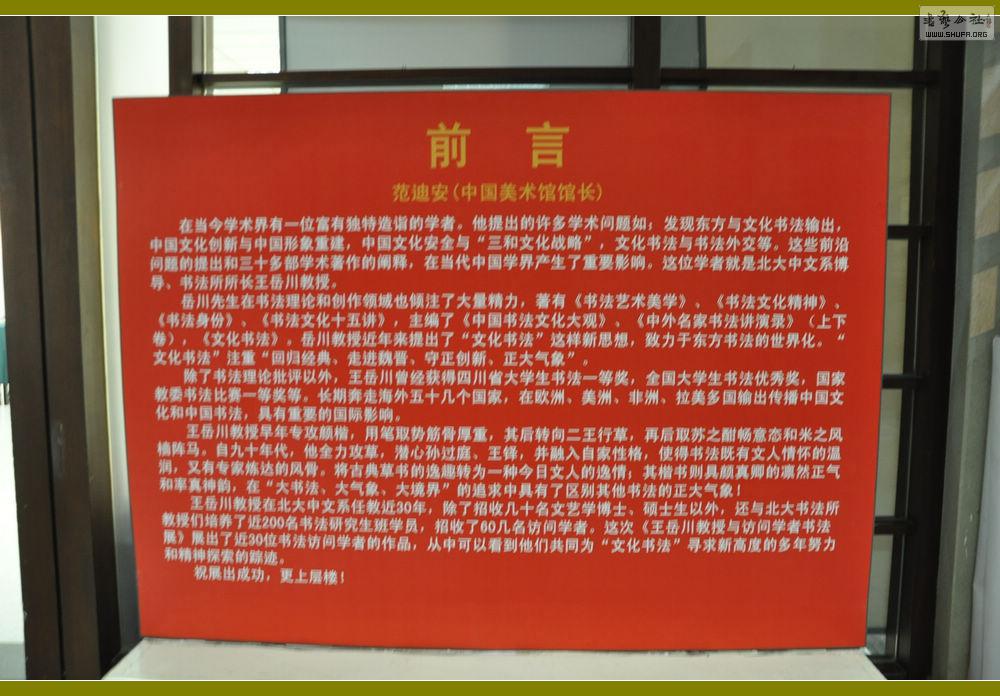 书艺公社
WWW.SHUFA.ORG
前 言
范迪安(中国美术馆馆长)
在当今学术界有一位富有独特造诣的学者。他提出的许多学术问题如:发现东方与文化书法输出,
中国文化创新与中国形象重建,中国文化安全与“三和文化战略”,文化书法与书法外交等。这些前沿
问题的提出和三十多部学术著作的阐释,在当代中国学界产生了重要影响。这位学者就是北大中文系博
导、书法所所长王岳川教授。
岳川先生在书法理论和创作领域也倾注了大量精力,著有《书法艺术美学》、《书法文化精神》、
《书法身份》、《书法文化十五讲》,主编了《中国书法文化大观》、《中外名家书法讲演录》(上下
卷),《文化书法》。岳川教授近年来提出了“文化书法”这样新思想,致力于东方书法的世界化。“
文化书法”注重“回归经典、走进魏晋、守正创新、正大气象”。
除了书法理论批评以外,王岳川曾经获得四川省大学生书法一等奖,全国大学生书法优秀奖,国家
教委书法比赛一等奖等。长期奔走海外五十几个国家,在欧洲、美洲、非洲、拉美多国输出传播中国文
化和中国书法,具有重要的国际影响。
王岳川教授早年专攻颜楷,用笔取势筋骨厚重,其后转向二王行草,再后取苏之酣畅意态和米之风
樯阵马。自九十年代,他全力攻草,潜心孙过庭、王铎,并融入自家性格,使得书法既有文人情怀的温
润,又有专家炼达的风骨。将古典草书的逸趣转为一种今日文人的逸情;其楷书则具颜真卿的凛然正气
和率真神韵,在“大书法、大气象、大境界”的追求中具有了区别其他书法的正大气象!
王岳川教授在北大中文系任教近30年,除了招收几十名文艺学博士、硕士生以外,还与北大书法所
教授们培养了近200名书法研究生班学员,招收了60几名访问学者。这次《王岳川教授与访问学者书法
展》展出了近30位书法访问学者的作品,从中可以看到他们共同为“文化书法”寻求新高度的多年努力
和精神探索的踪迹。
祝展出成功,更上层楼!